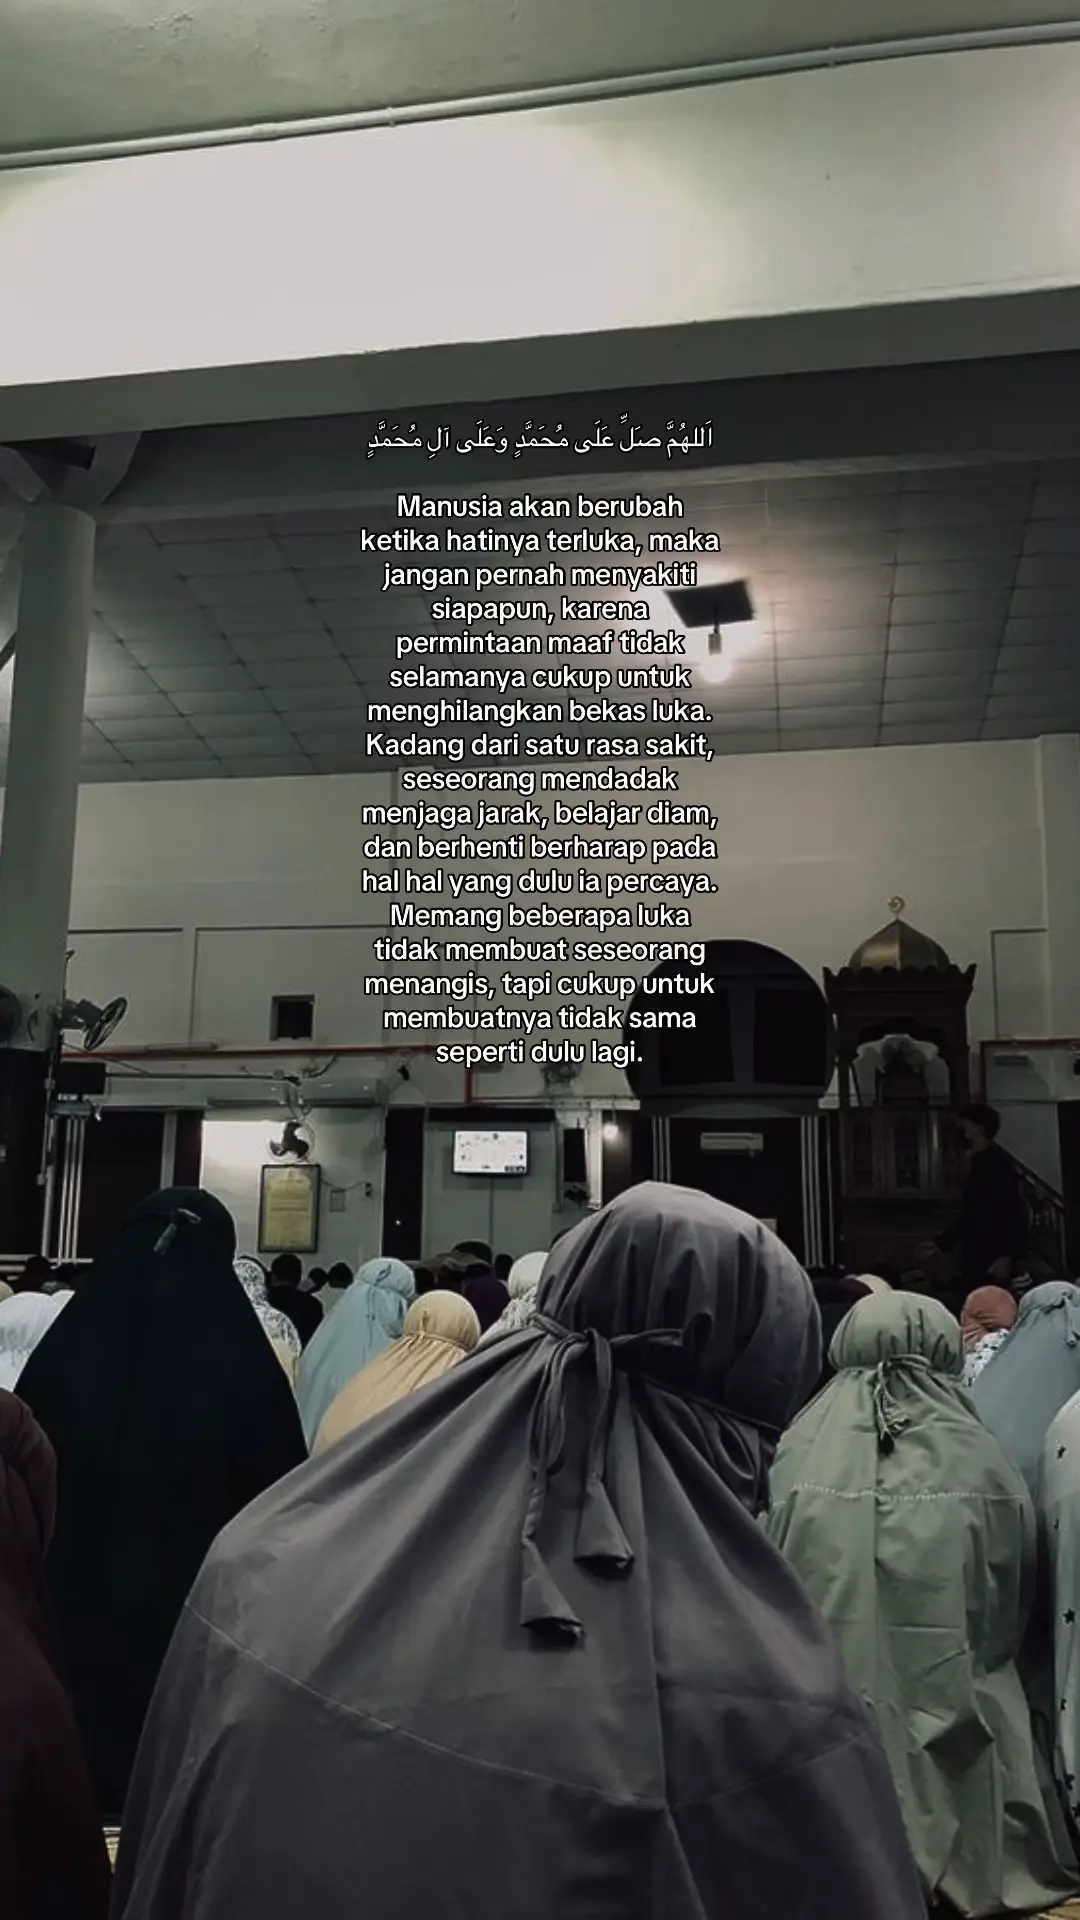 اَللهُمَّ صَلِّ عَلَى مُحَمَّدٍ وَعَلَى آلِ مُحَمَّدٍ
Manusia akan berubah
ketika hatinya terluka, maka
jangan pernah menyakiti
siapapun, karena
permintaan maaf tidak
selamanya cukup untuk
menghilangkan bekas luka.
Kadang dari satu rasa sakit,
seseorang mendadak
menjaga jarak, belajar diam,
dan berhenti berharap pada
hal hal yang dulu ia percaya.
Memang beberapa luka
tidak membuat seseorang
menangis, tapi cukup untuk
membuatnya tidak sama
seperti dulu lagi.